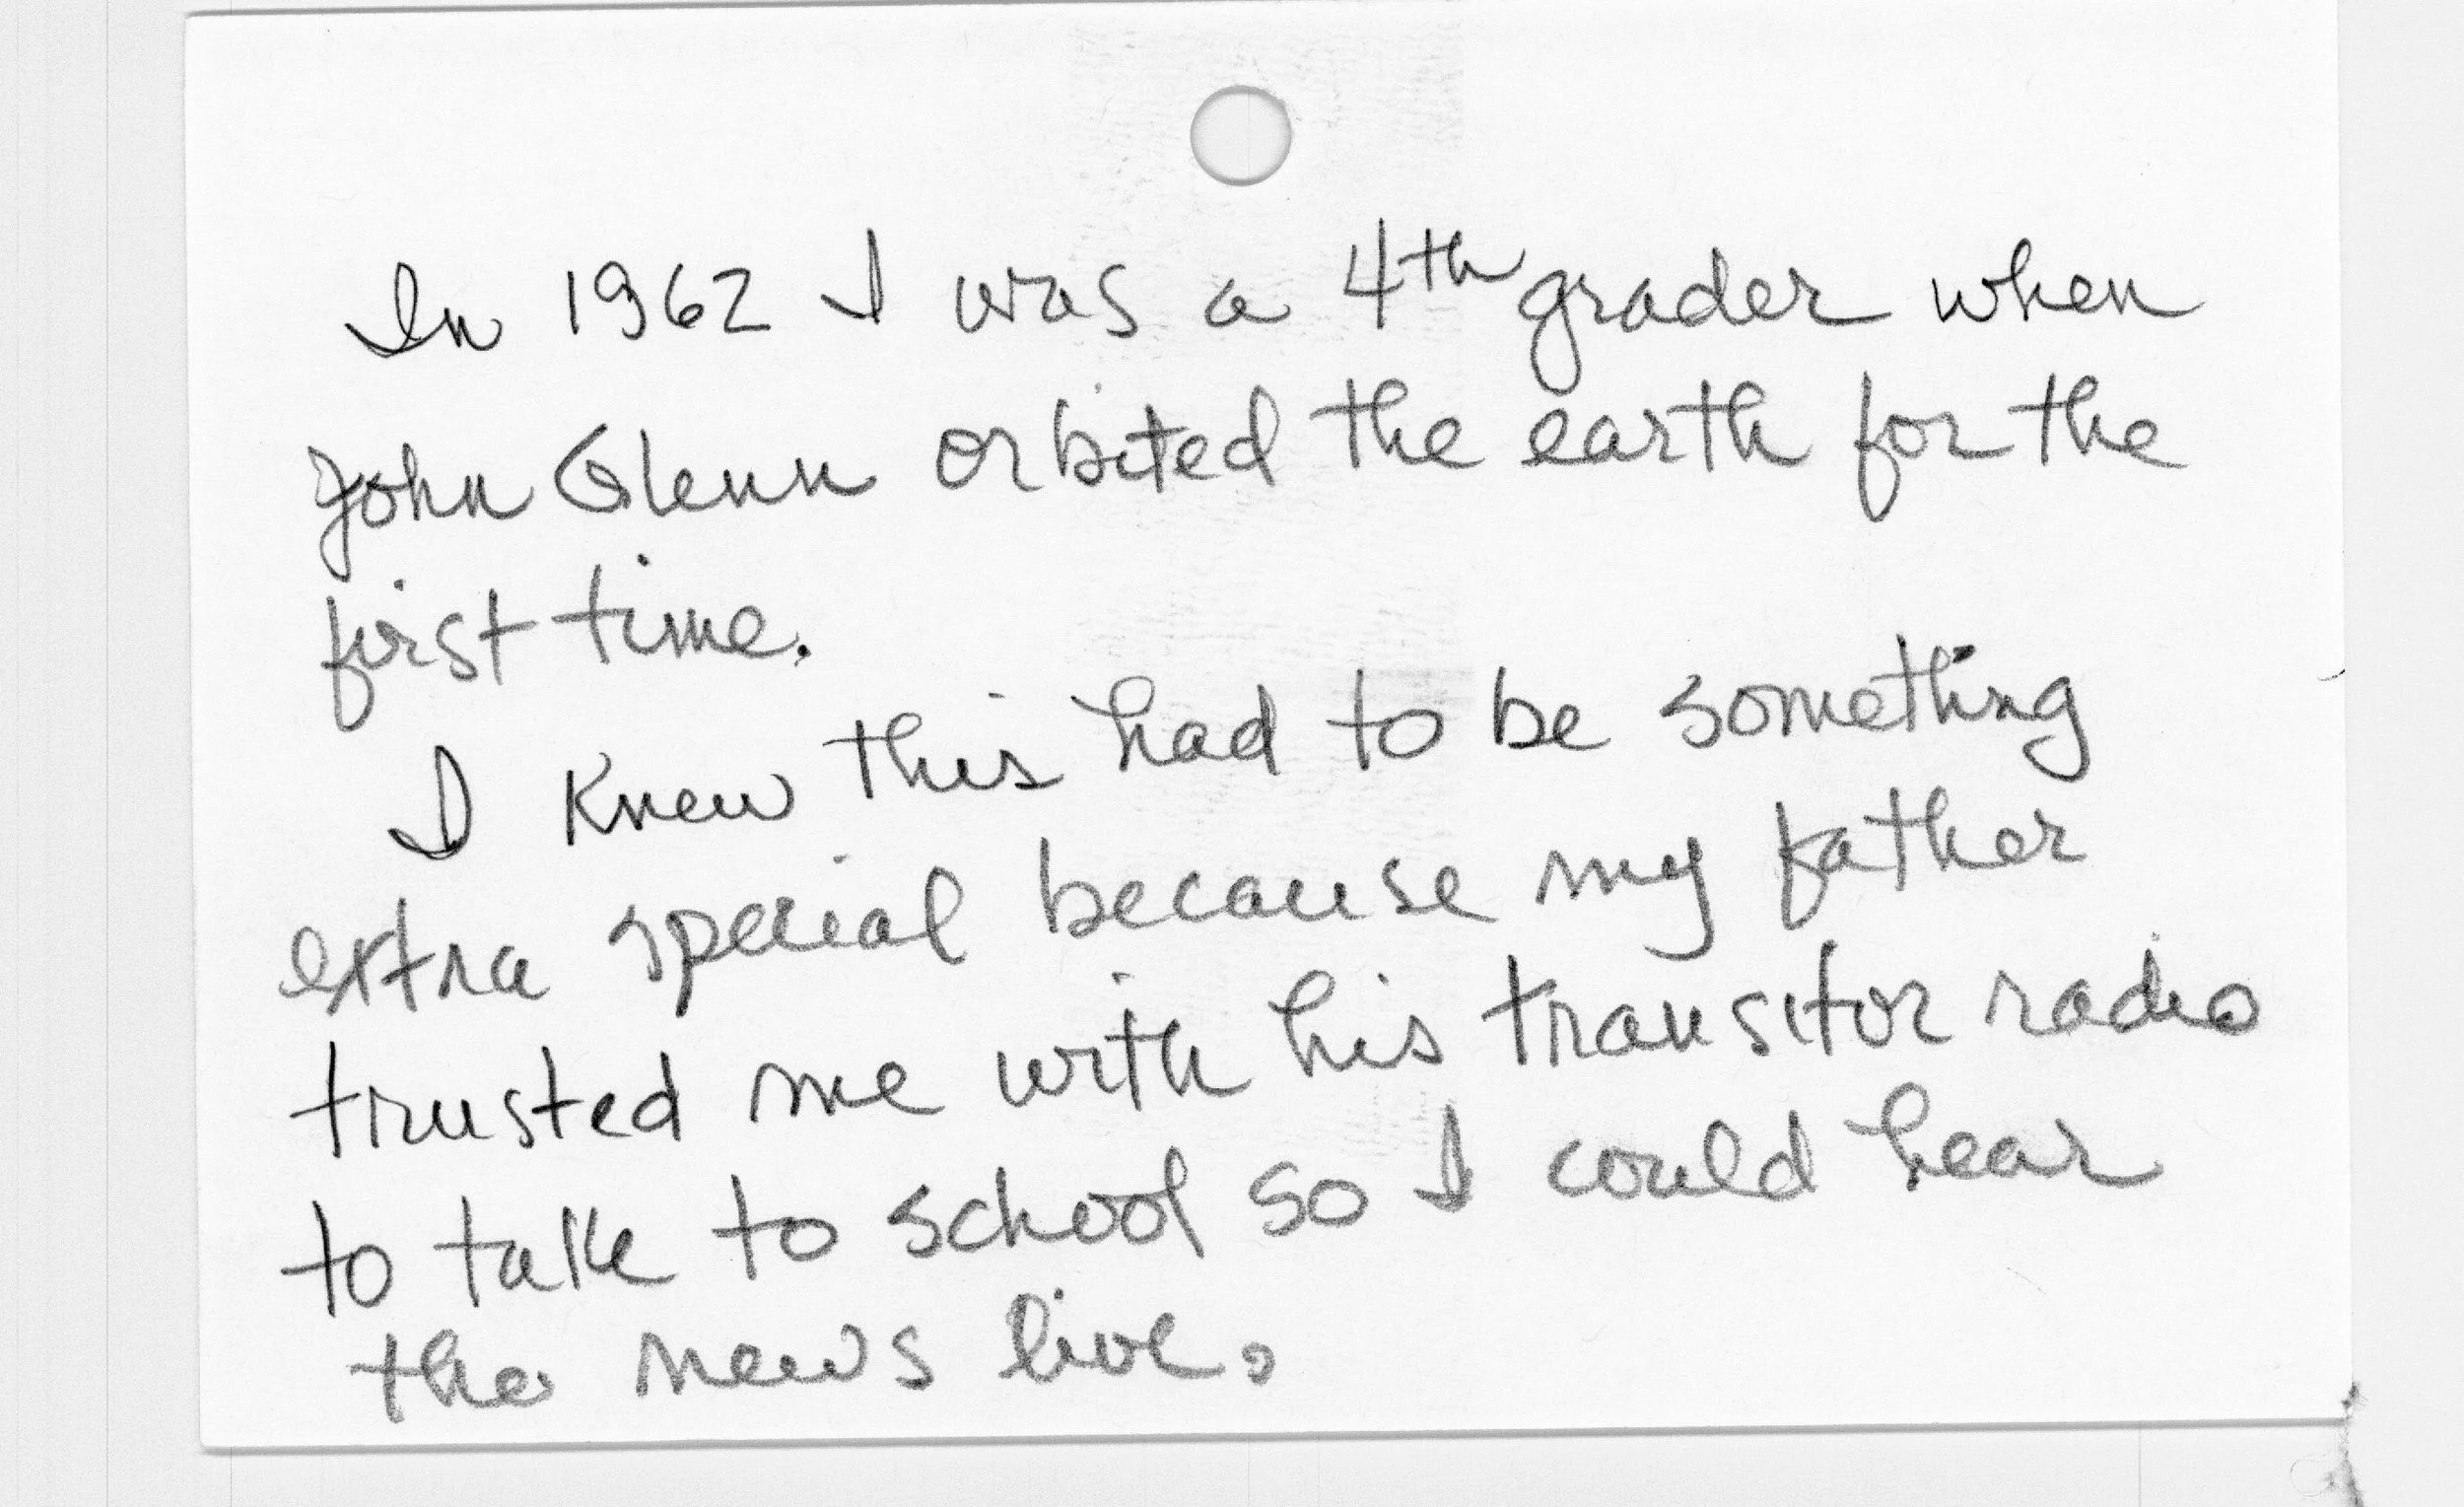 In 1962 I was a 4th grader when
John Glenn orbited the earth for the
first time.
I knew this had to be something
extra special because my father
trusted me with his transitor radio
to take to school so I could hear
the news live.